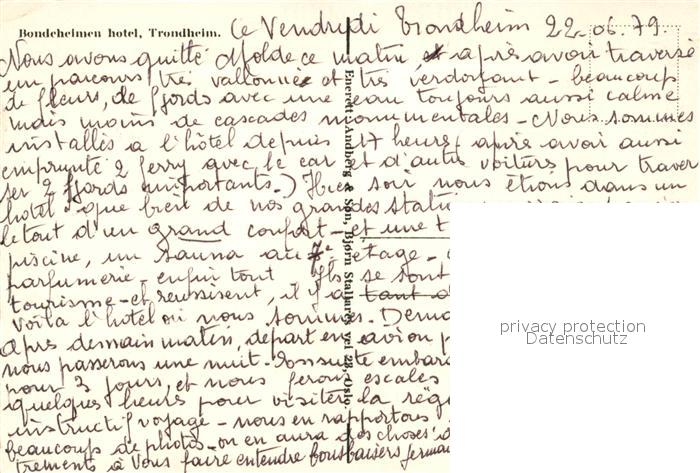 Bondeheimen hotel, Trondheim.
Ce Vendredi Trondheim 22.06.79.
Nous avons quitté Molde ce matin, et après avoir traversé
un parcours très vallonnée et très verdoyant - beaucoup
de fleurs, de fjords avec une eau toujours aussi calme
mais moins de cascades monumentales - Nous sommes
installés a l'hôtel depuis 17 heures (après avoir aussi
emprunté 2 ferry avec le car et d'autres voitures pour traver
ser 2 fjords importants.) Hier soir nous étions dans un
hotel que bien de nos grandes stati
le tout d'un grand confort - et une t
piscine, un sauna au 7e étage -
parfumerie - enfin tout Ils se sont
tourisme - et réussissent, il y a tant d
Voilà l'hotel où nous sommes. Dema
Après demain matin, départ en avion p
nous passerons une nuit - Ensuite embar
pour 3 jours, et nous ferons escales
quelques heures pour visiter la rég
instructif voyage - nous en rapportons
beaucoup de photos - on en aura des choses
trements à vous faire entendre bons baisers
Eneret: Andberg & Søn, Bjørn Stallares vei 28, Oslo.
privacy protection
Datenschutz